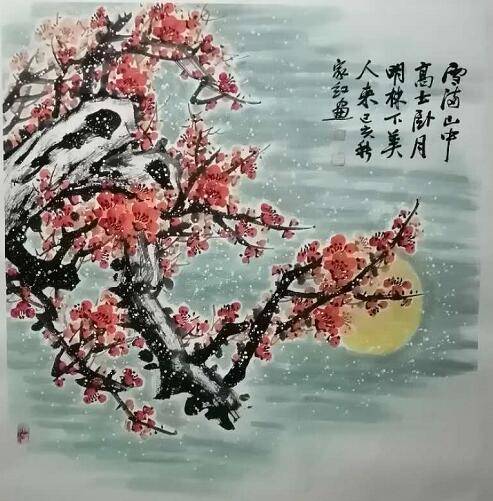 雪满山中
高士卧月
明林下美
人来己亥秋
家红画